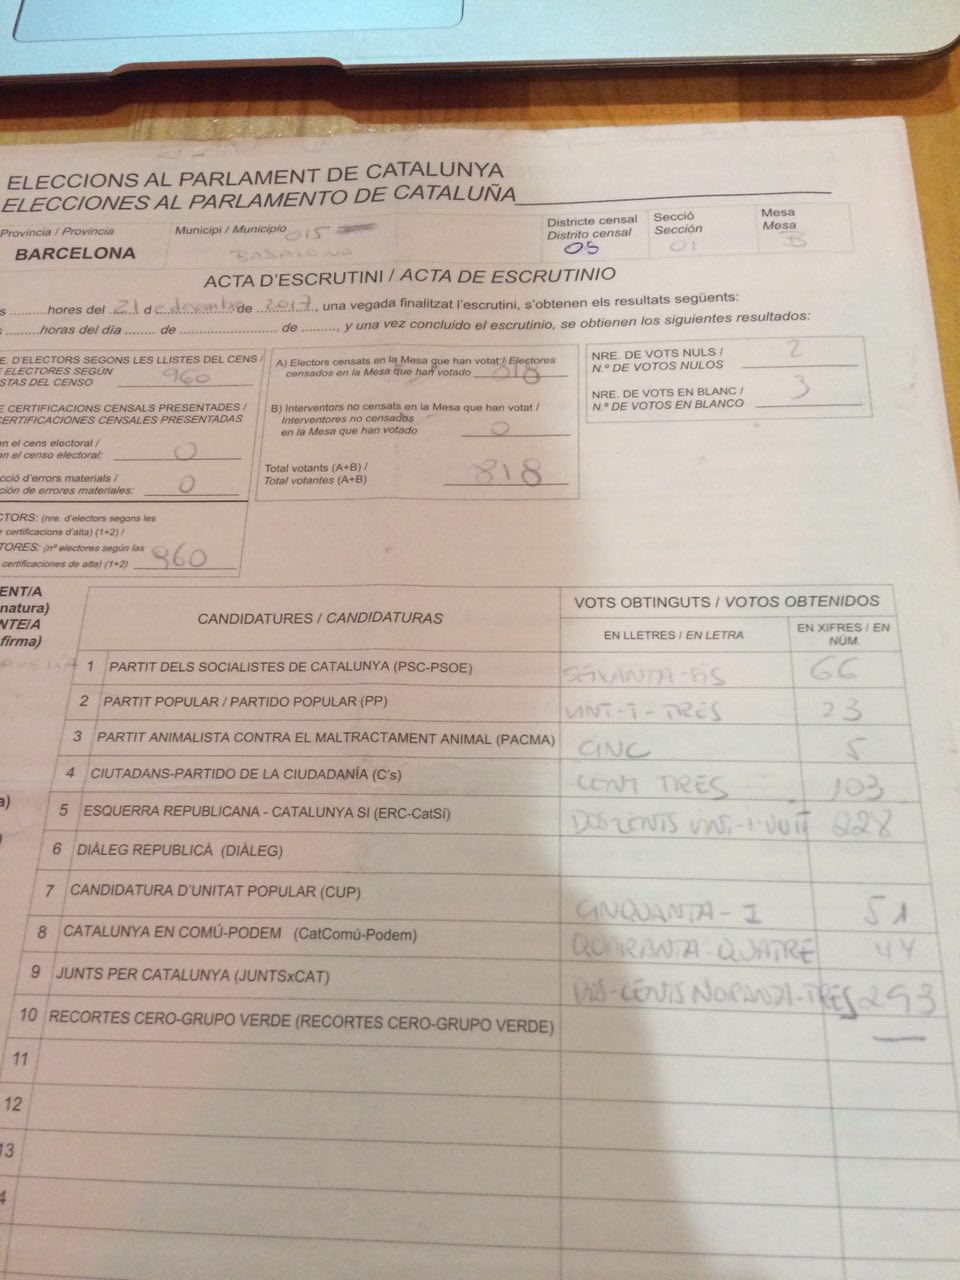 ELECCIONS AL PARLAMENT DE CATALUNYA
ELECCIONES AL PARLAMENTO DE CATALUÑA
Provincia / Provincia
BARCELONA
Municipi / Municipio 015
BADALONA
Districte censal
Distrito censal
05
Secció
Sección
01
Mesa
Mesa
B
ACTA D'ESCRUTINI / ACTA DE ESCRUTINIO
s ........hores del 21 d e desembre de 2017, una vegada finalitzat l'escrutini, s'obtenen els resultats següents:
s ........horas del día ....... de ............................ de ........, y una vez concluido el escrutinio, se obtienen los siguientes resultados:
E. D'ELECTORS SEGONS LES LLISTES DEL CENS /
E ELECTORES SEGÚN
STAS DEL CENSO 960
E CERTIFICACIONS CENSALS PRESENTADES /
CERTIFICACIONES CENSALES PRESENTADAS
en el cens electoral /
en el censo electoral: 0
cció d'errors materials /
ción de errores materiales: 0
CTORS: (nre. d'electors segons les
+ certificacions d'alta) (1+2) /
TORES: (nº electores según las
certificaciones de alta) (1+2) 960
A) Electors censats en la Mesa que han votat / Electores
censados en la Mesa que han votado 818
B) Interventors no censats en la Mesa que han votat /
Interventores no censados
en la Mesa que han votado 0
Total votants (A+B) /
Total votantes (A+B) 818
NRE. DE VOTS NULS /
N.º DE VOTOS NULOS 2
NRE. DE VOTS EN BLANC /
N.º DE VOTOS EN BLANCO 3
ENT/A
natura)
NTE/A
firma)
CANDIDATURES / CANDIDATURAS
VOTS OBTINGUTS / VOTOS OBTENIDOS
EN LLETRES / EN LETRA
EN XIFRES / EN NÚM.
1 PARTIT DELS SOCIALISTES DE CATALUNYA (PSC-PSOE) SEIXANTA-SIS 66
2 PARTIT POPULAR / PARTIDO POPULAR (PP) VINT-I-TRES 23
3 PARTIT ANIMALISTA CONTRA EL MALTRACTAMENT ANIMAL (PACMA) CINC 5
4 CIUTADANS-PARTIDO DE LA CIUDADANÍA (C's) CENT TRES 103
5 ESQUERRA REPUBLICANA - CATALUNYA SI (ERC-CatSí) DOS-CENTS VINT-I-VUIT 228
6 DIÀLEG REPUBLICÀ (DIÀLEG)
7 CANDIDATURA D'UNITAT POPULAR (CUP) CINQUANTA-I 51
8 CATALUNYA EN COMÚ-PODEM (CatComú-Podem) QUARANTA-QUATRE 44
9 JUNTS PER CATALUNYA (JUNTSxCAT) DOS-CENTS NORANTA-TRES 293
10 RECORTES CERO-GRUPO VERDE (RECORTES CERO-GRUPO VERDE)
11
12
13
4